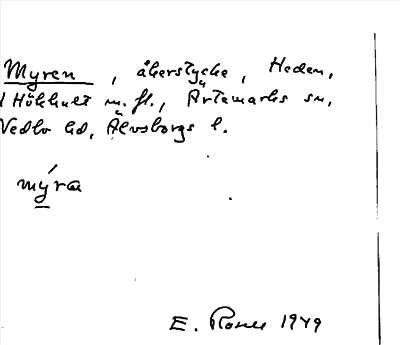 Myren, åkerstycke, Heden,
Hökhult m. fl., Ärtemarks sn,
Vedbo hd, Älvsborgs l.
mýra
E. Rosell 1949